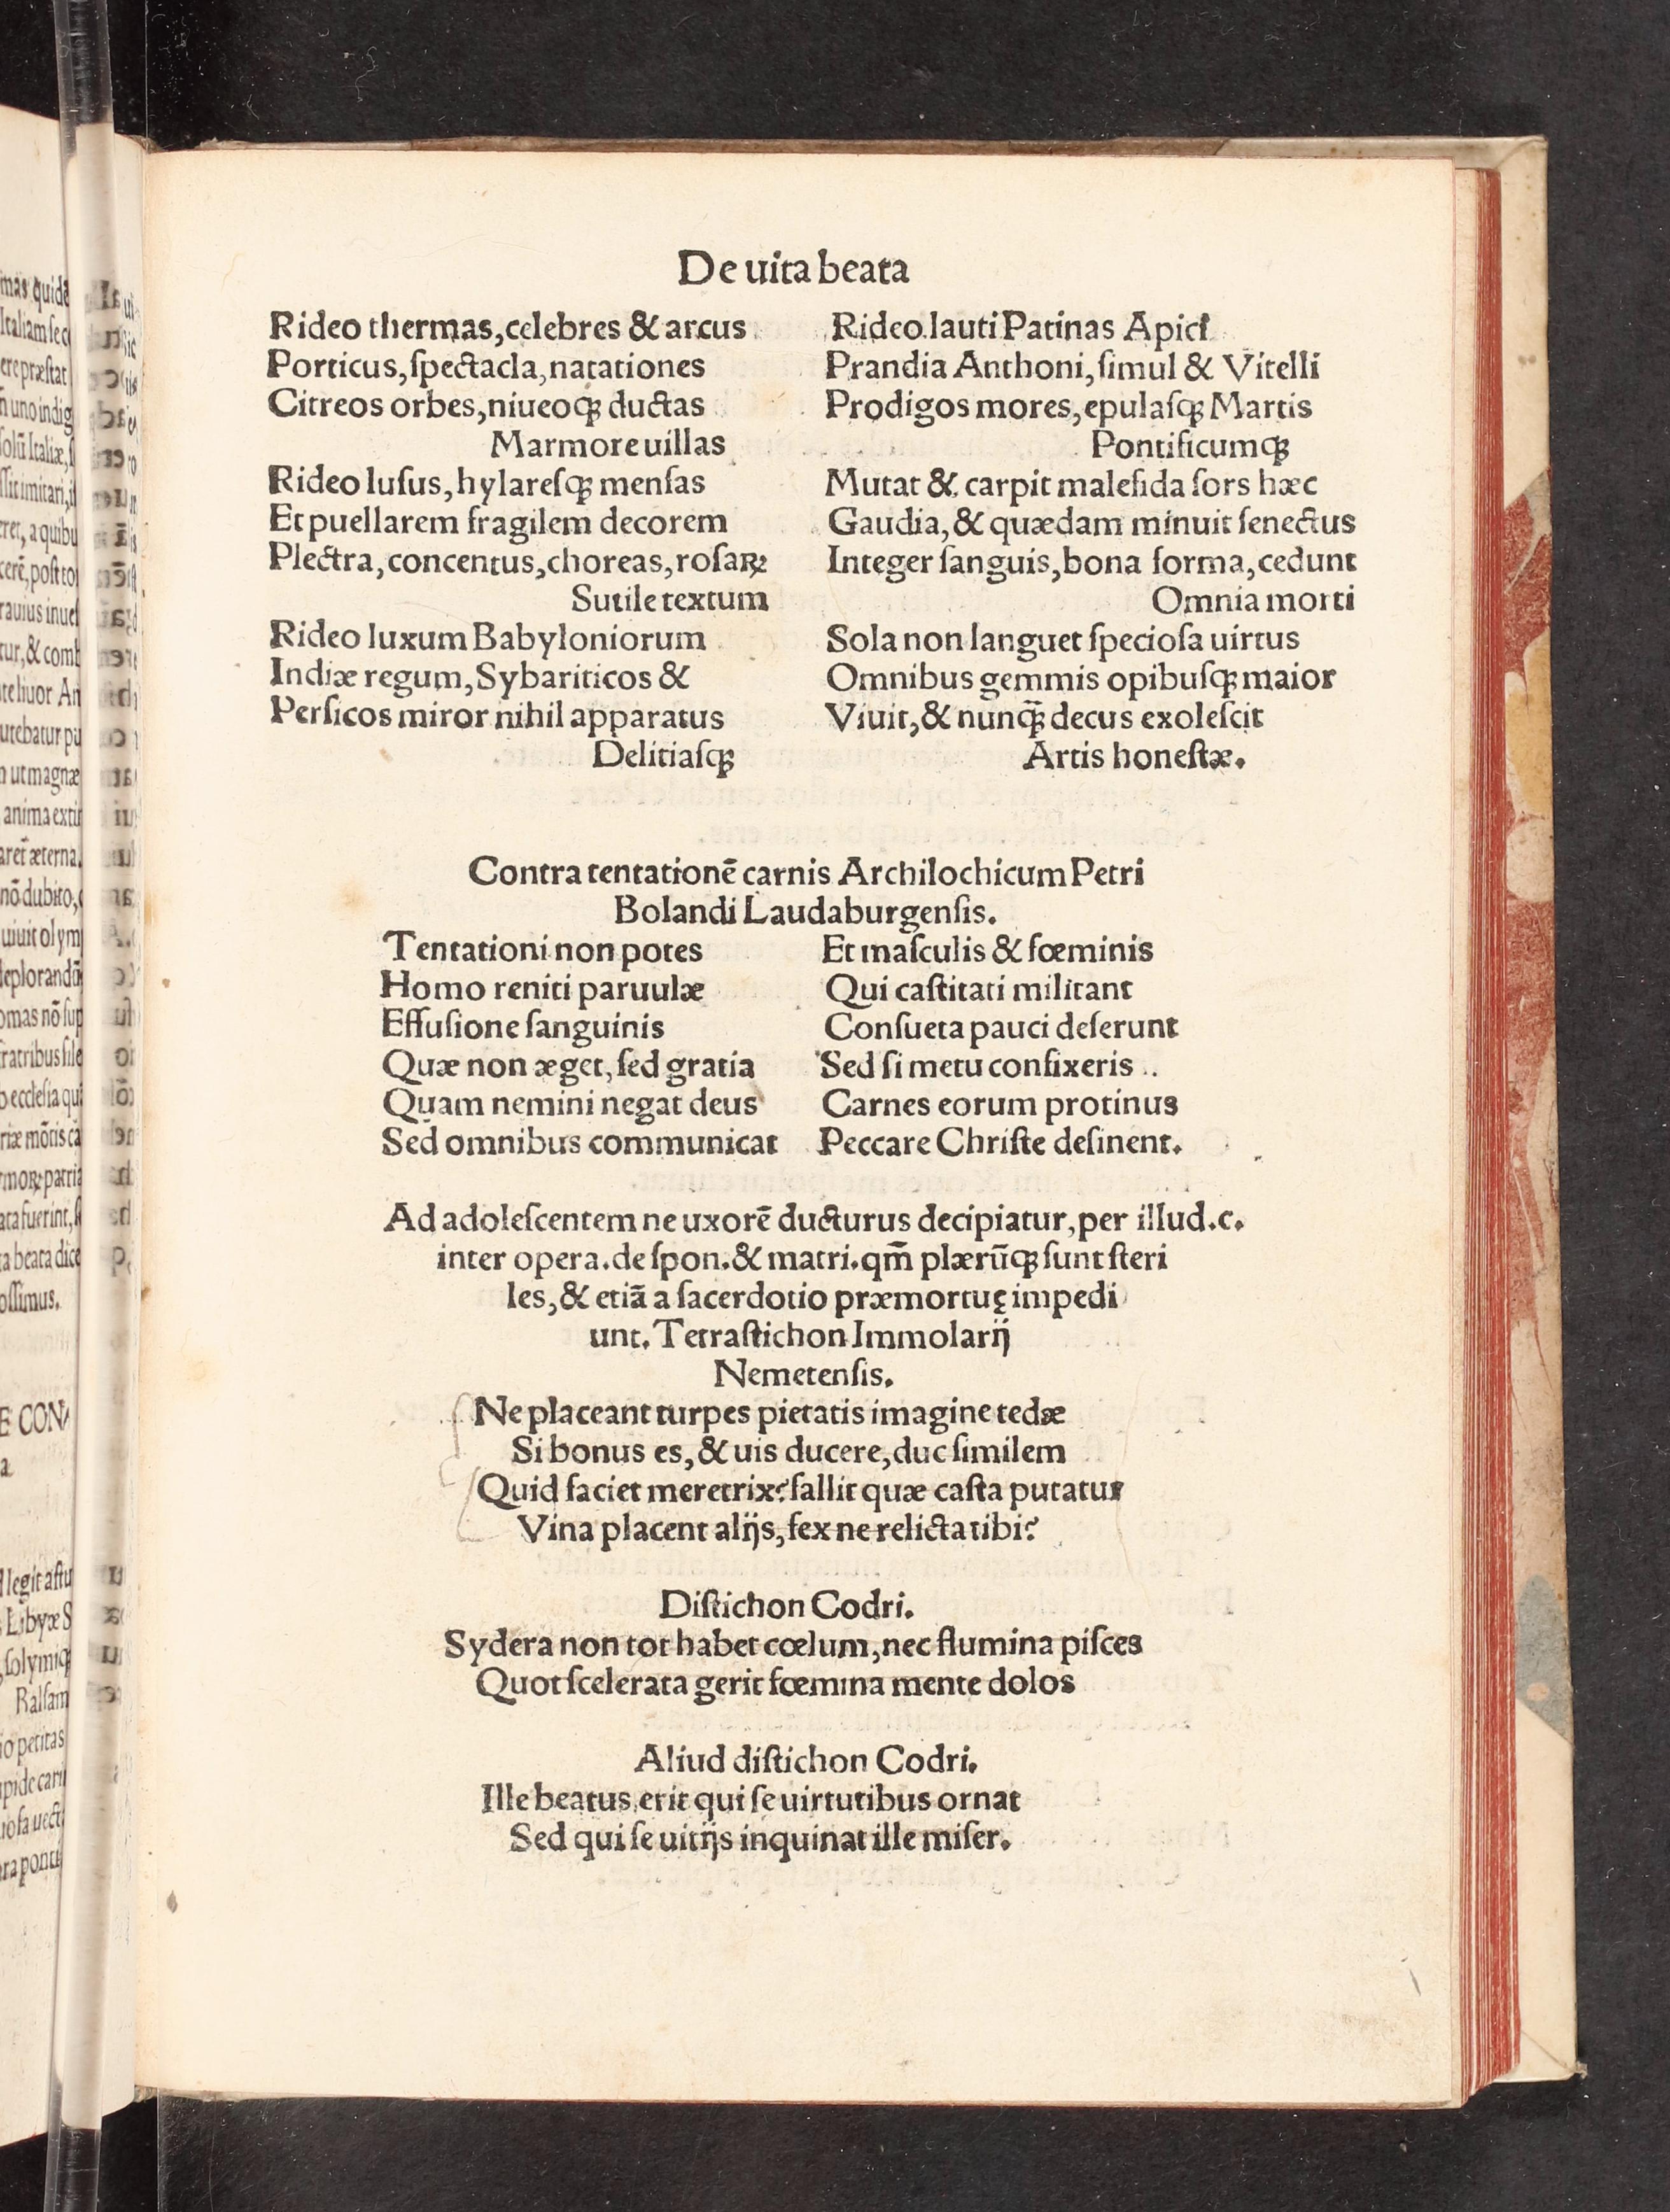 De uita beata
Rideo thermas, celebres & arcus
Porticus, ſpectacla, natationes
Citreos orbes, niueoqꝫ ductas
Marmore uillas
Rideo luſus, hylareſqꝫ menſas
Et puellarem fragilem decorem
Plectra, concentus, choreas, roſaꝝ
Sutile textum
Rideo luxum Babyloniorum
Indiæ regum, Sybariticos &
Perſicos miror nihil apparatus
Delitiaſqꝫ
Rideo lauti Patinas Apici
Prandia Anthoni, ſimul & Vitelli
Prodigos mores, epulaſqꝫ Martis
Pontificumqꝫ
Mutat & carpit malefida ſors hæc
Gaudia, & quædam minuit ſenectus
Integer ſanguis, bona forma, cedunt
Omnia morti
Sola non languet ſpecioſa uirtus
Omnibus gemmis opibuſqꝫ maior
Viuit, & nunq̃ꝫ decus exoleſcit
Artis honeſtæ.
Contra tentationē carnis Archilochicum Petri
Bolandi Laudaburgenſis.
Tentationi non potes
Homo reniti paruulæ
Effuſione ſanguinis
Quæ non æget, ſed gratia
Quam nemini negat deus
Sed omnibus communicat
Et maſculis & fœminis
Qui caſtitati militant
Conſueta pauci deferunt
Sed ſi metu confixeris
Carnes eorum protinus
Peccare Chriſte deſinent.
Ad adoleſcentem ne uxorē ducturus decipiatur, per illud.c.
inter opera. de ſpon. & matri. qm̄ plærūqꝫ ſunt ſteri
les, & etiā a ſacerdotio præmortuę impedi
unt. Tetraſtichon Immolarij
Nemetenſis.
Ne placeant turpes pietatis imagine tedæ
Si bonus es, & uis ducere, duc ſimilem
Quid faciet meretrix? fallit quæ caſta putatur
Vina placent alijs, fex ne relicta tibi?
Diſtichon Codri.
Sydera non tot habet cœlum, nec flumina piſces
Quot ſcelerata gerit fœmina mente dolos
Aliud diſtichon Codri.
Ille beatus erit qui ſe uirtutibus ornat
Sed qui ſe uitijs inquinat ille miſer.